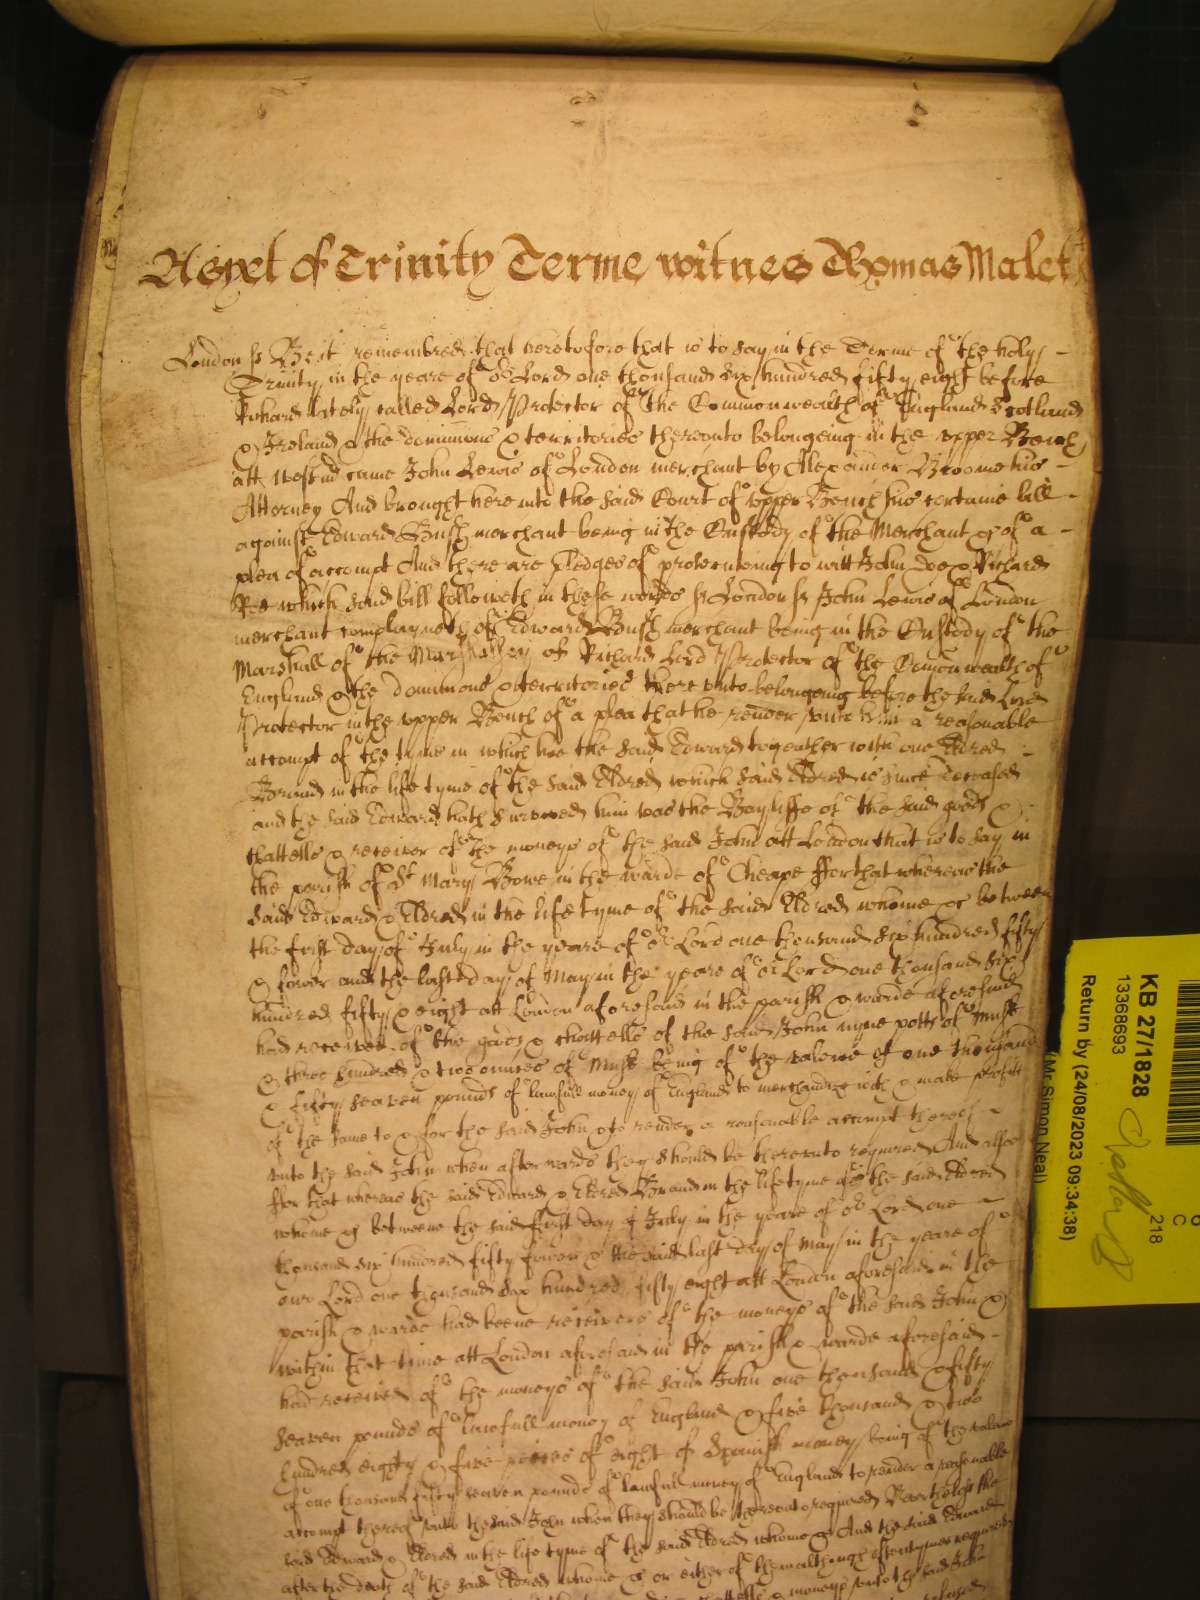 As yet of Trinity Terme witnes Thomas Malet
London ss Be it remembred that heretofore that is to say in the Terme of the holy
Trinity in the yeare of or Lord one thousand six hundred fifty eight before
Richard lately called Lord Protector of the Commonwealth of England Scotland
& Ireland & the dominions & territories thereunto belongeing in the upper Bench
att Westmr came John Lewis of London merchant by Alexander Broome his
Attorney And brought here into the said Court of upper Bench his certaine bill
against Edward Bush merchant being in the Custody of the Marshall &c of a
plea of accompt And there are pledges of prosecuteing to witt John Doe & Richard
Roe which said bill followeth in these words ss London ss John Lewis of London
merchant complayneth of Edward Bush merchant being in the Custody of the
Marshall of the Marshalsey of Richard Lord Protector of the Comonwealth of
England & the dominions & territories thereunto belongeing before the said Lord
Protector in the upper Bench of a plea that he render unto him a reasonable
accompt of the tyme in which hee the said Edward togeather with one Eldred
in the life tyme of the said Eldred which said Eldred is since deceased
and the said Edward hath survived him was the Bayliffe of the said goods &
chattells & receiver of the moneys of the said John att London that is to say in
the parish of St Mary Bowe in the warde of Cheape ffor that whereas the
said Edward & Eldred in the life tyme of the said Eldred whome &c betweene
the first day of July in the yeare of or Lord one thousand six hundred fifty
& fower and the last day of May in the yeare of or Lord one thousand six
hundred fifty & eight att London aforesaid in the parish & warde aforesaid
had received of the goods & chattells of the said John nyne potts of Musk
& three hundred & two ounces of Musk being of the valewe of one thousand
& fifty seaven pounds of lawfull money of England to merchandize with & make profitt
of the same to & for the said John & to render a reasonable accompt thereof
unto the said John when afterwards they should be thereunto required And allsoe
ffor that whereas the said Edward & Eldred in the life tyme of the said Eldred
whome &c betweene the said first day of July in the yeare of or Lord one
thousand six hundred fifty fower & the said last day of May in the yeare of
our Lord one thousand six hundred fifty eight att London aforesaid in the
parish & warde had beene receivers of the moneys of the said John &
within that time att London aforesaid in the parish & warde aforesaid
had received of the moneys of the said John one thousand & fifty
seaven pounds of lawfull money of England & five thousand & two
hundred eighty & five peeces of eight of Spanish money being of the valewe
of one thousand fifty seaven pounds of lawfull money of England to render a reasonable
accompt thereof unto the said John when they should be thereunto required Neverthelesse the
said Edward & Eldred in the life tyme of the said Eldred whome &c And the said Edward
after the death of the said Eldred whome &c or either of them although oftentymes required
& moneys unto the said John
KB 27/1828
13368693
218
Return by (24/08/2023 09:34:38)
(Mr Simon Neal)